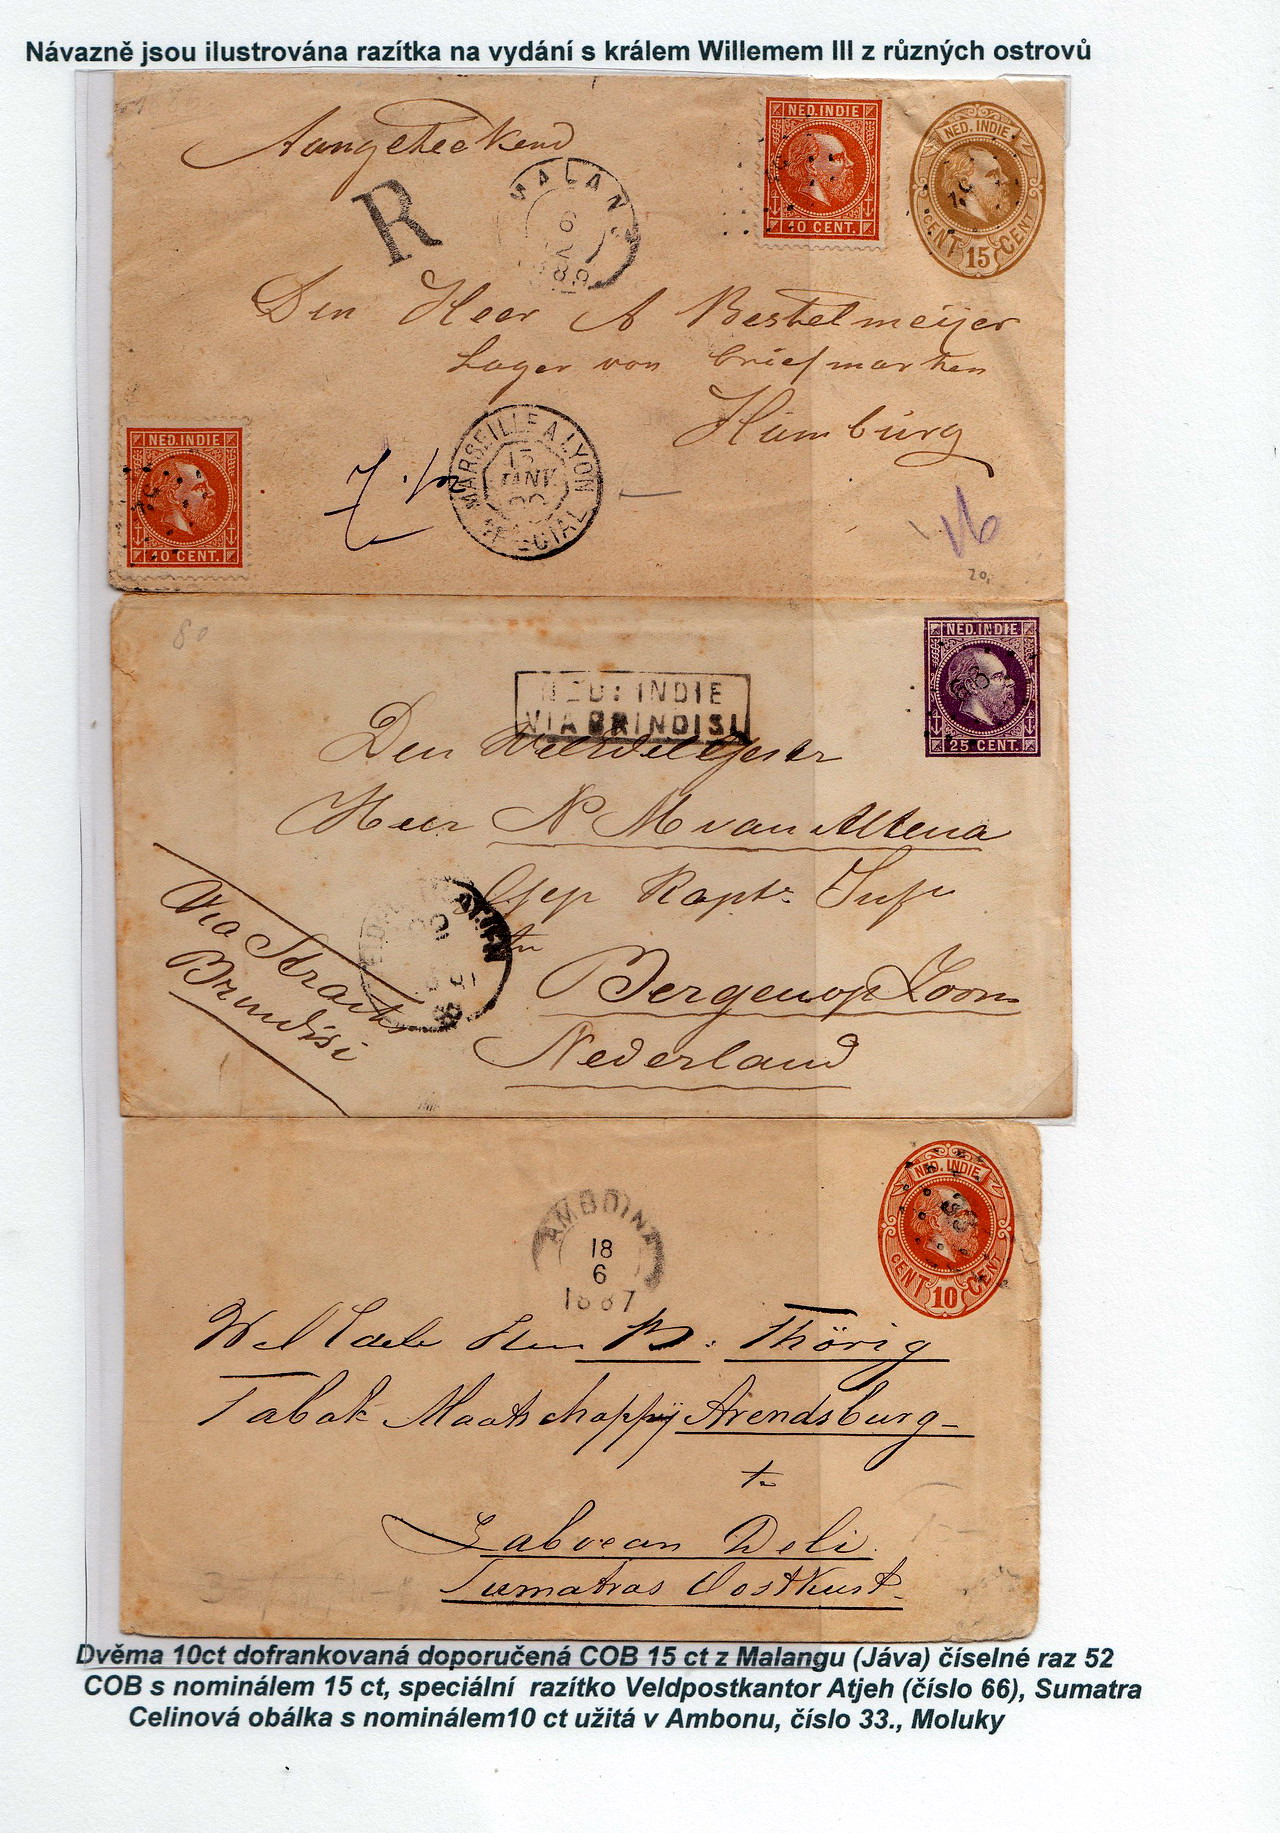 Návazně jsou ilustrována razítka na vydání s králem Willemem III z různých ostrovů
Aangeteekend
R
MALANG
6
NED. INDIE
10 CENT.
NED. INDIE
CENT 15 CENT
Den Heer A Bestelmeijer
Lager von briefmarken
Hamburg
MARSEILLE A LYON
13
JANV.
90
SPECIAL
NED. INDIE
10 CENT.
V6
20,
80
NED: INDIE
VIA BRINDISI
NED. INDIE
25 CENT.
Den Weledelgestr
Heer N M van Altena
Gep Kapt. Inf
te
Bergen op Zoom
Nederland
Via Straits
Brindisi
AMBOINA
18
6
1887
NED. INDIE
CENT 10 CENT
33
Wel Edele Heer B. Thörig
Tabak Maatschappij Arendsburg
te
Laboean Deli.
Sumatras Oostkust
Dvěma 10ct dofrankovaná doporučená COB 15 ct z Malangu (Jáva) číselné raz 52
COB s nominálem 15 ct, speciální razítko Veldpostkantor Atjeh (číslo 66), Sumatra
Celinová obálka s nominálem10 ct užitá v Ambonu, číslo 33., Moluky